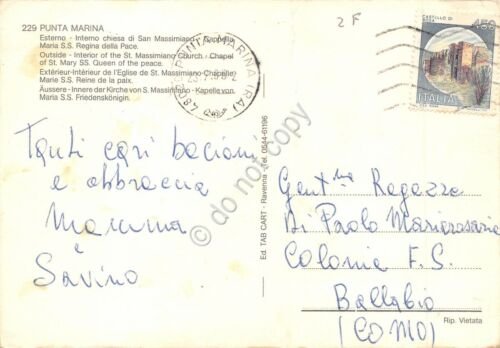 229 PUNTA MARINA
Esterno - Interno chiesa di San Massimiano - Cappella
Maria S.S. Regina della Pace.
Outside - Interior of the St. Massimiano Church - Chapel
of St. Mary SS. Queen of the peace.
Extérieur-Intérieur de l'Eglise de St. Massimiano-Chapelle
Maria S.S. Reine de la paix.
Äussere - Innere der Kirche von S. Massimiano - Kapelle von
Maria S.S. Friedenskönigin.
2 F
48020 PUNTA MARINA (RA)
CASTELLO DI
450
ITALIA
Tanti cari bacioni
e abbraccia
Mamma
e
Savino
Ed. TAB CART - Ravenna - Tel. 0544-61196
Gent.me Ragazze
Di Paolo Mariarosaria
Colonia F.S.
Ballabio
(COMO)
Rip. Vietata
do not copy